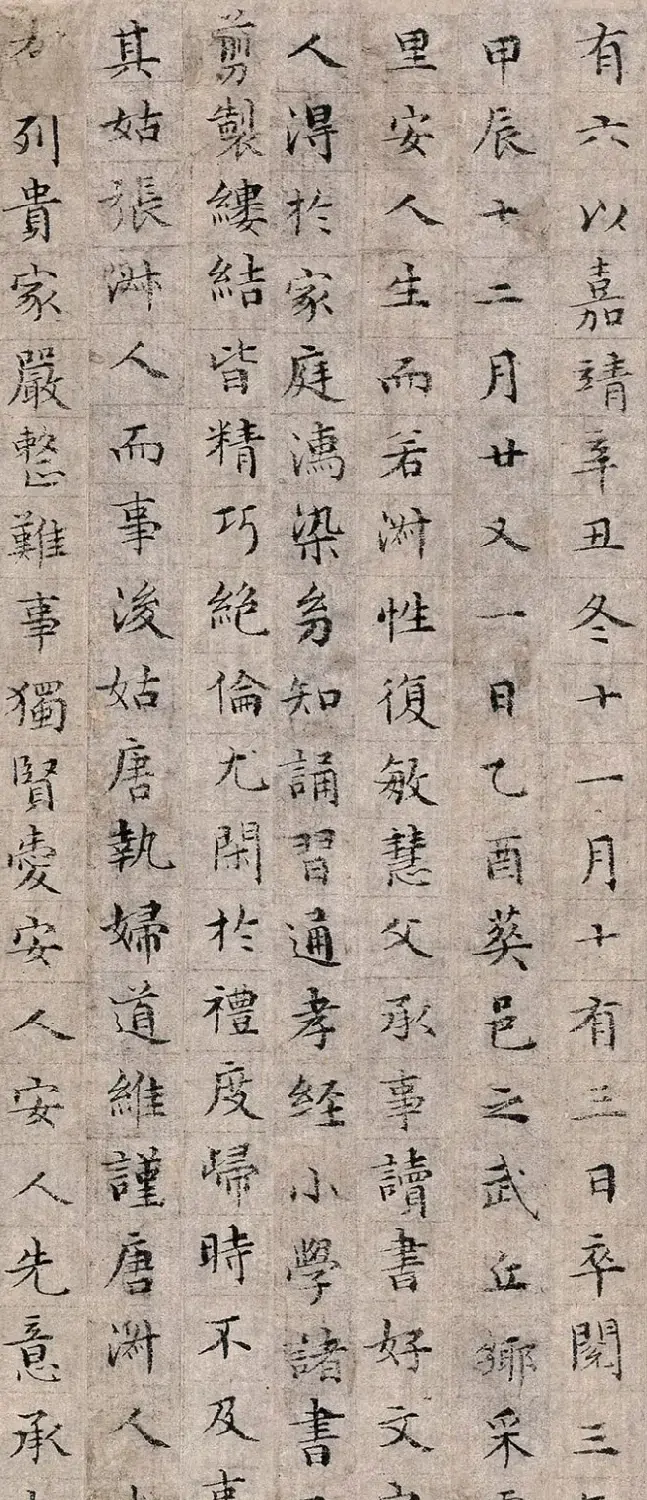 有六以嘉靖辛丑冬十一月十有三日卒閱三
甲辰十二月廿又一日乙酉葬邑之武丘鄉采
里安人生而若淑性復敏慧父承事讀書好文
人得於家庭濡染多知誦習通孝経小學諸書
剪製縷結皆精巧絕倫尤閑於禮度歸時不及
其姑張淑人而事後姑唐執婦道維謹唐淑人
列貴家嚴整難事獨賢愛安人安人先意承